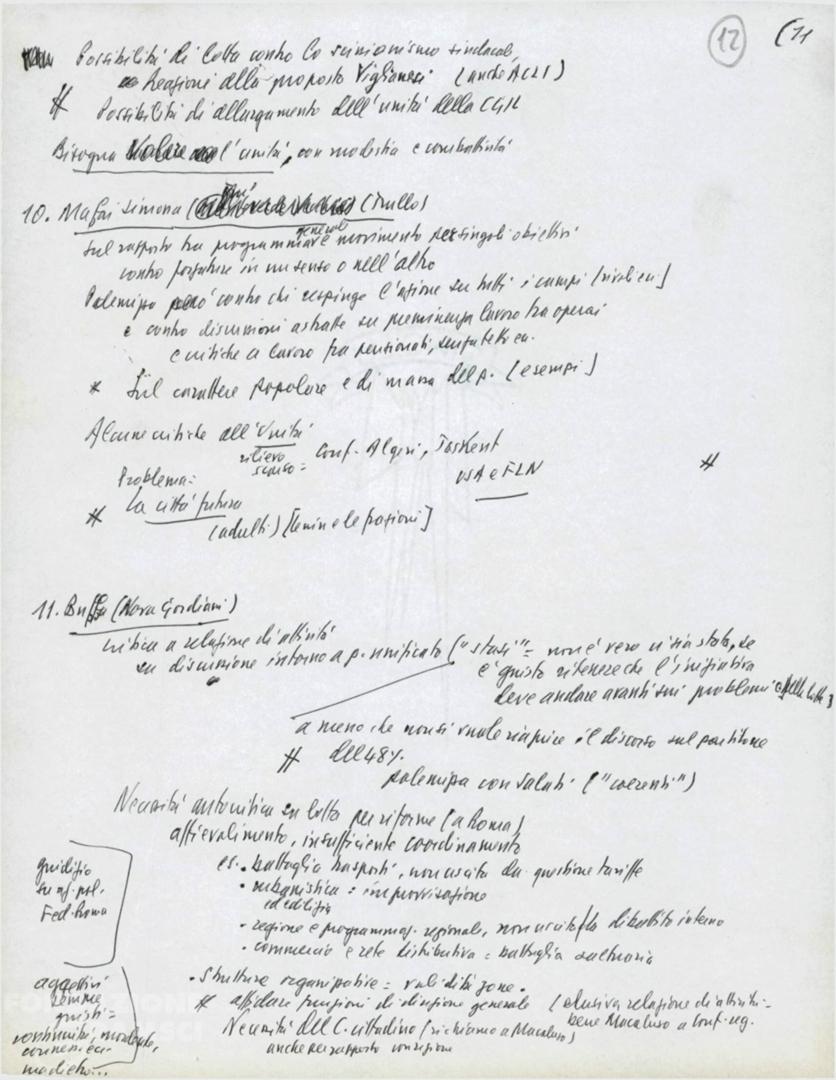 12 (11
Possibilità di lotta contro lo scissionismo sindacale
Reazioni alla proposta Viglianesi (anche ACLI)
# Possibilità di allargamento dell'unità della CGIL
Bisogna volere l'unità, con modestia e combattività
10. Mafai Simona (Trullo)
Sul rapporto tra programma generale e movimento per singoli obiettivi
contro forzature in un senso o nell'altro
Polemizza però contro chi respinge l'azione su tutti i campi [rivolieri]
e contro discussioni astratte su preminenza lavoro tra operai
e critiche a lavoro fra pensionati, senzatetto ecc.
* Sul carattere popolare e di massa del p. [esempi]
Alcune critiche all'Unità
rilievo scarso = conf. Algeri, Taskent
USA e FLN
#
Problema:
# La città futura
(adulti) [Lenin e le frazioni]
11. Buffa (Nova Gordiani)
critica a relazione di attività
su discussione intorno a p. unificato ("stasi" = non è vero vi sia stata, se
è giusto ritenere che l'iniziativa
deve andare avanti sui problemi e nelle lotte)
a meno che non si vuole riaprire il discorso sul partitone
# del 48%.
polemizza con Salati ("coerenti")
Necessità autocritica su lotta per riforme (a Roma)
affievolimento, insufficiente coordinamento
es. • battaglia trasporti, non uscita da questione tariffe
• urbanistica = improvvisazione
ed edilizia
• regione e programmaz. regionale, non uscita da dibattito interno
• commercio e rete distributiva = battaglia saltuaria
giudizio
su az. pol.
Fed. Roma
• Strutture organizzative = validità zone.
# affidare funzioni di direzione generale (elusiva relazione di attività -
bene Macaluso a Conf. reg.
Necessità del C. cittadino (richiamo a Macaluso)
anche per rapporto con regione
aggettivi
giusti =
continuità, modesta,